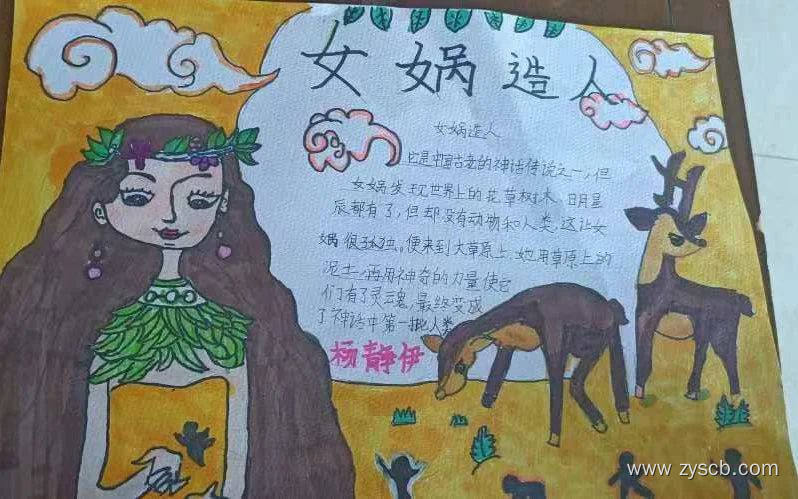 女娲造人
女娲造人
它是中国古老的神话传说之一,但
女娲发现世界上的花草树木,日月星
辰都有了,但却没有动物和人类,这让女
娲很孤独。便来到大草原上,她用草原上的
泥土,再用神奇的力量使它
们有了灵魂,最终变成
了神话中第一批人类
杨静伊
www.zyscb.com